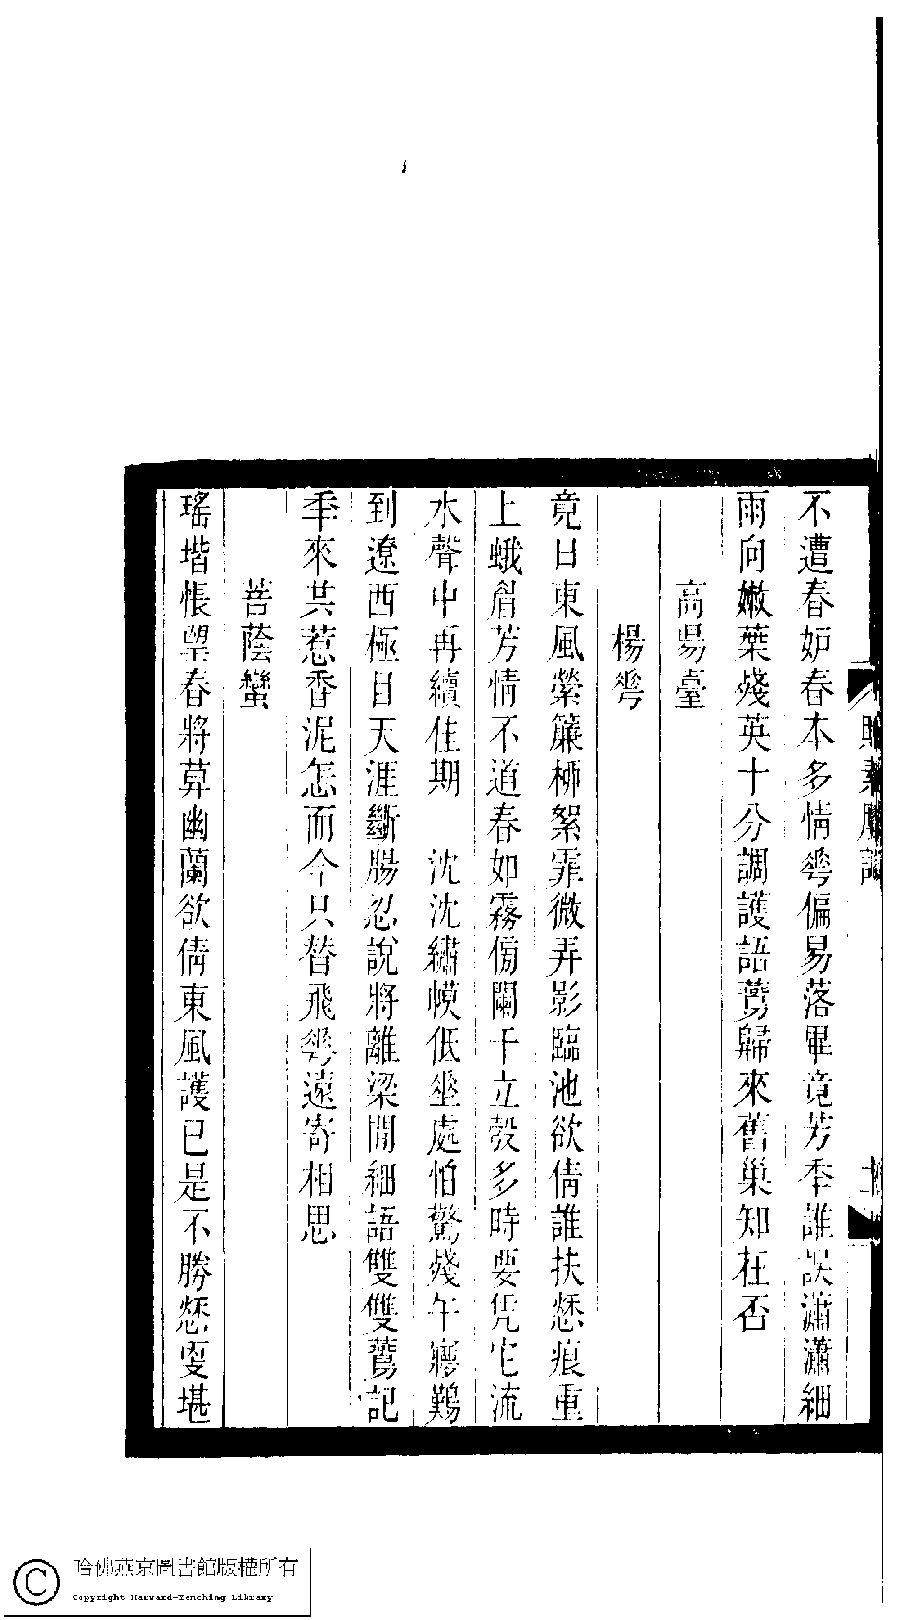 不遭春妒春本多情蕐偏易落畢竟芳秊誰誤瀟瀟細
雨向嫩葉殘英十分調護語鷰歸來舊巢知在否
高昜臺
楊蕐
竟日東風縈簾桺絮霏微弄影臨池欲倩誰扶愁痕重
上蛾眉芳情不道春如霧傍闌干立彀多時要凭它流
水聲中再續佳期　沈沈繡幙低㘴處怕驚殘午㝱難
到遼西極目天涯斷腸忍說將離梁間細語雙雙鷰記
秊來共惹香泥怎而今只替飛蕐遠寄相思
菩蔭蠻
瑤堦悵望春將莫幽蘭欲倩東風護已是不勝愁更堪
哈佛燕京圖書館版權所有
Copyright Harvard-Yenching Library